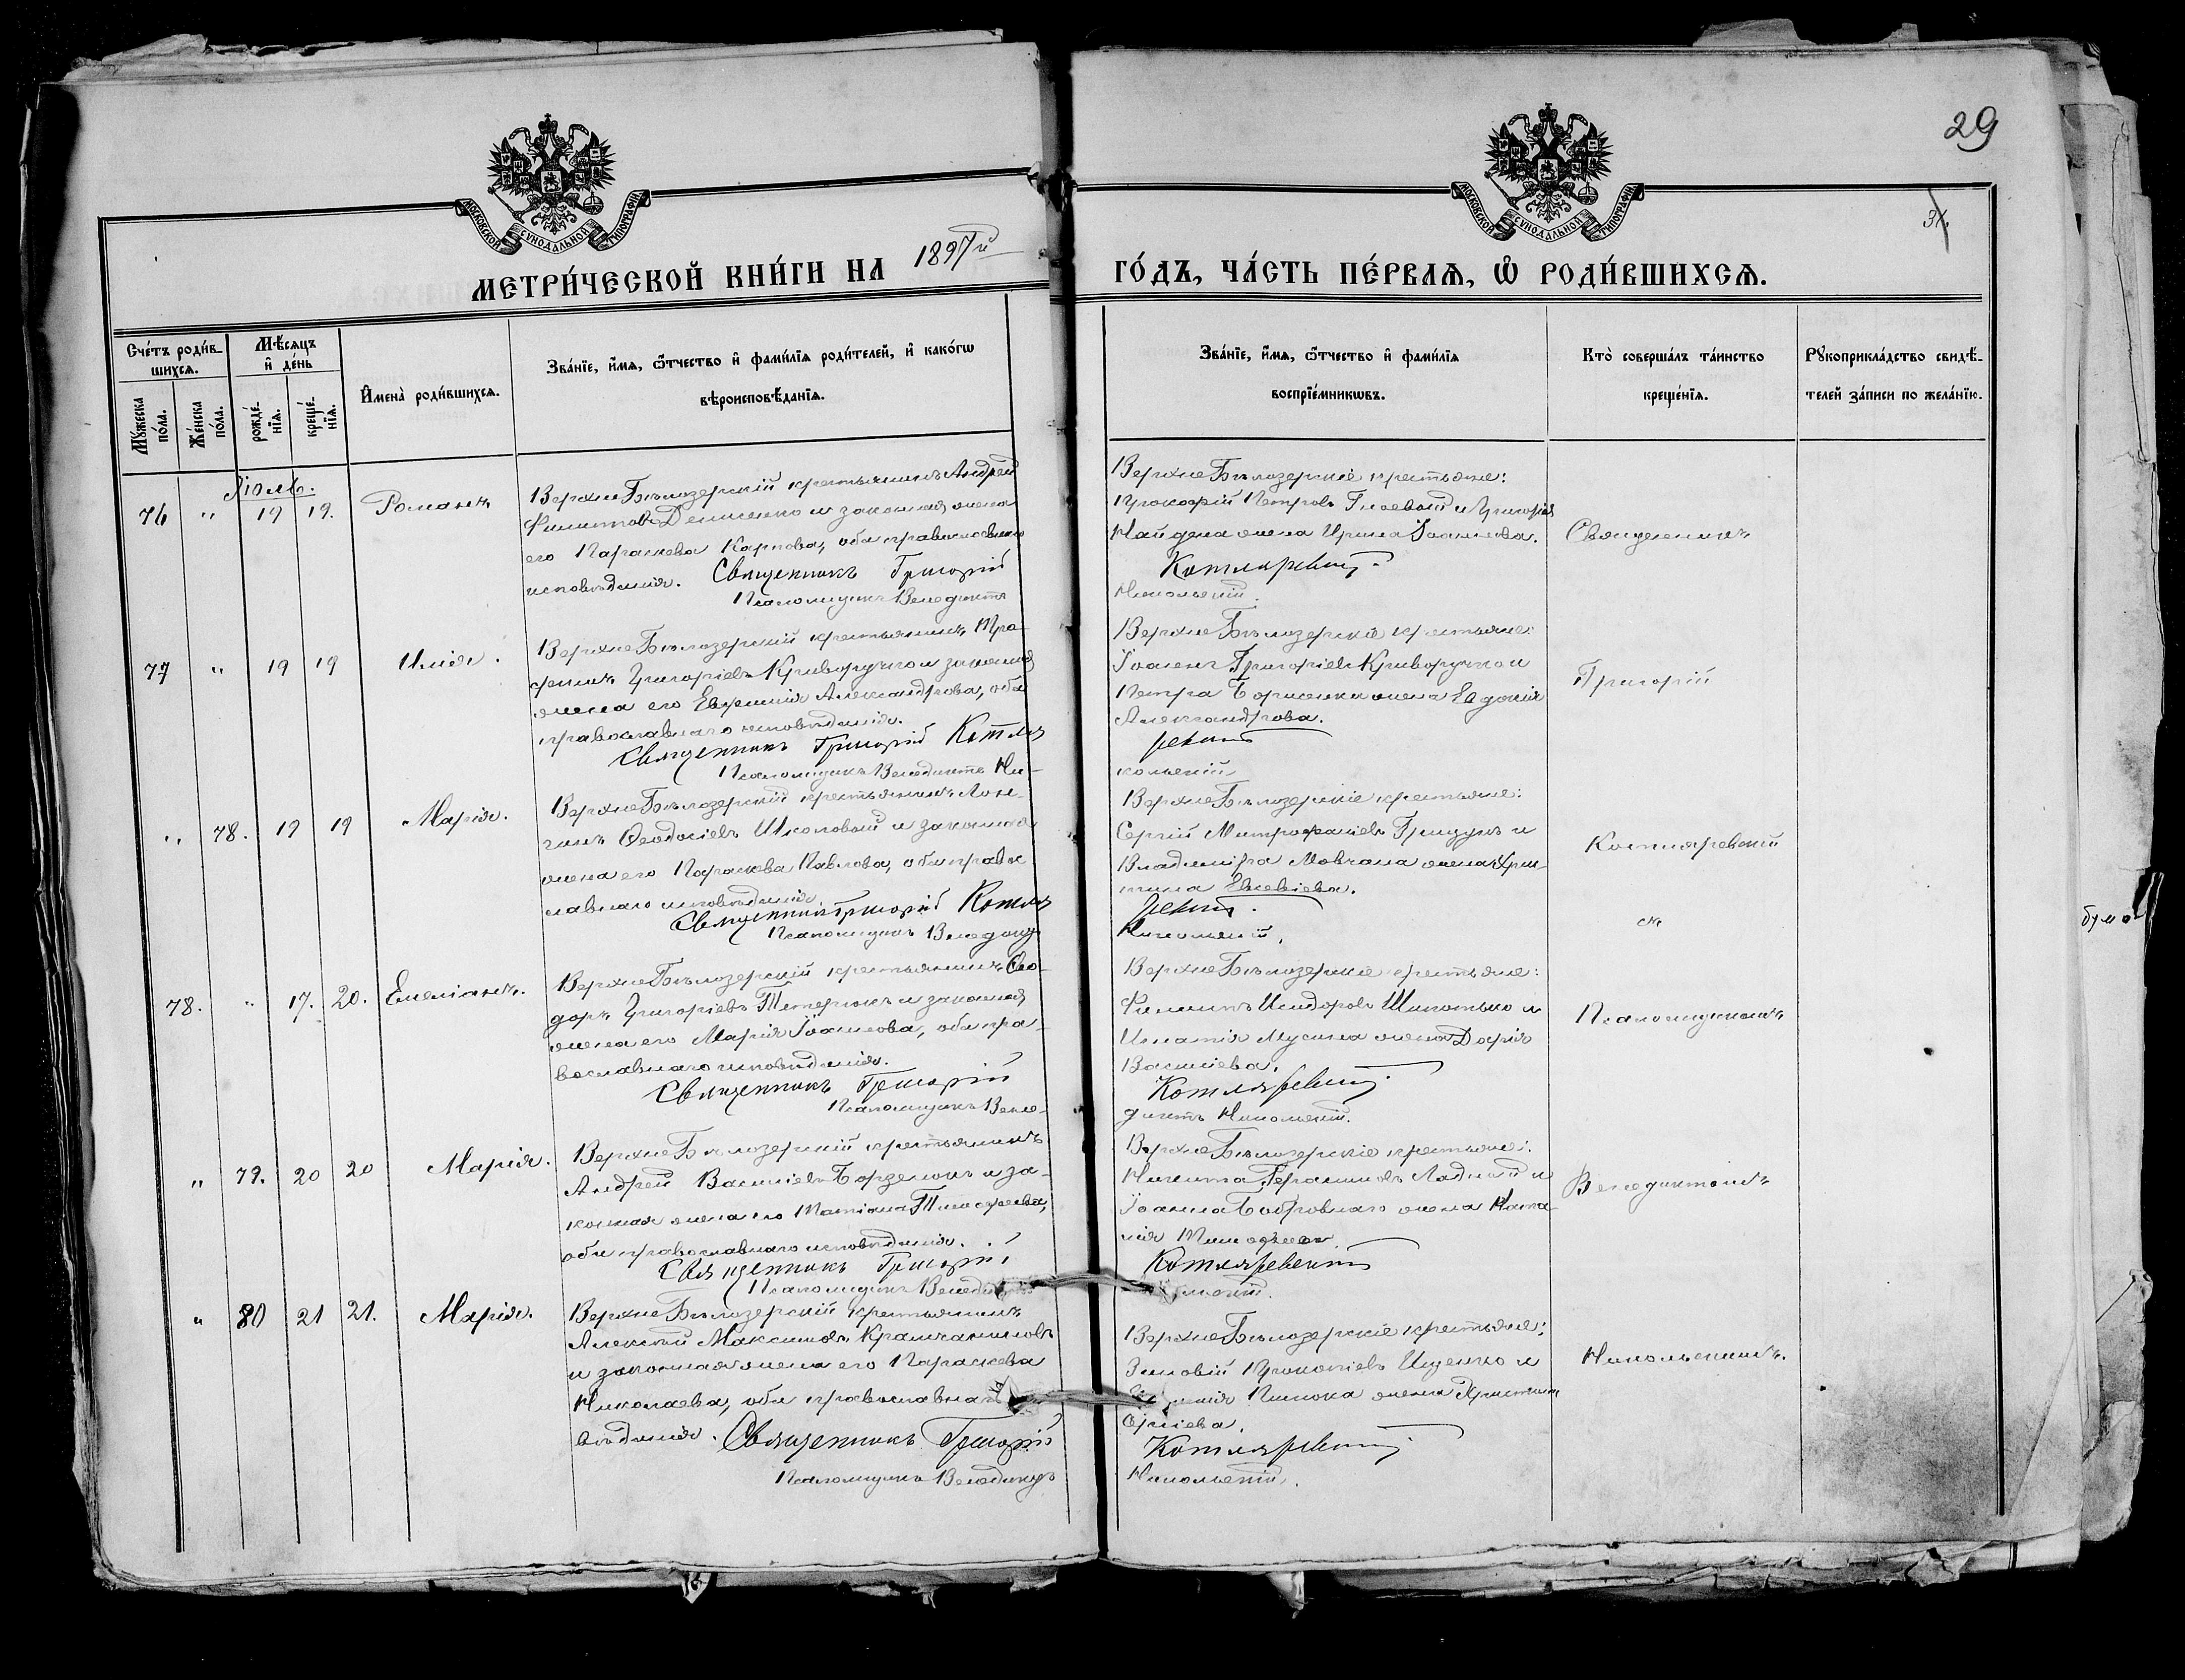 29
31
МОСКОВСКОЙ СѴНОДАЛЬНОЙ ТИПОГРАФІИ
МОСКОВСКОЙ СѴНОДАЛЬНОЙ ТИПОГРАФІИ
МЕТРИ́ЧЕСКОЙ КНИ́ГИ НА 1897й
ГО́ДЪ, ЧА́СТЬ ПЕ́РВАѦ, Ѡ РОДИ́ВШИХСѦ.
Сче́тъ роди́в-
шихсѧ.
Мѣ́сѧцъ
и де́нь
Мꙋ́жеска
по́ла.
Же́нска
по́ла.
рожде́-
нїѧ.
креще́-
нїѧ.
И҆мена̀ роди́вшихсѧ.
Зва́нїе, и҆́мѧ, ѻ҆́тчество и҆ фами́лїѧ роди́телей, и҆ како́гѡ
вѣроисповѣ́данїѧ.
Зва́нїе, и҆́мѧ, ѻ҆́тчество и҆ фами́лїѧ
воспрїе́мникѡвъ.
Кто̀ соверша́лъ та́инство
креще́нїѧ.
Рꙋкоприкла́дство свидѣ́-
телей за́писи по жела́нїю.
Іюль.
76 " 19 19. Романъ
Верхне Бѣлозерскій крестьянинъ Андрей
Филитовъ Денисенко и законная жена
его Параскева Карпова, оба православнаго
исповѣданія. Священникъ Григорій
Псаломщикъ Венедиктъ
Верхне Бѣлозерскіе крестьяне:
Прокофій Петровъ и Григорія
Найдена жена Ирина Іоаннова.
Котляревскій.
Никольскій.
Священникъ
77 " 19 19 Илія.
Верхне Бѣлозерскій крестьянинъ Тро-
фимъ Григоріевъ Криворучко и законная
жена его Евфимія Александрова, оба
православнаго исповѣданія.
Священникъ Григорій Котля
Псаломщикъ Венедиктъ Ни-
Верхне Бѣлозерскіе крестьяне:
Іоаннъ Григоріевъ Криворучко и
Петра Борисенки жена Евдокія
Александрова.
ревскій
кольскій
Григорій
" 78. 19 19 Марія.
Верхне Бѣлозерскій крестьянинъ Лон-
гинъ Ѳеодосіевъ Шкоповой и законная
жена его Параскева Павлова, оба правос
лавнаго исповѣданія.
Священникъ Григорій Котля
Псаломщикъ Венедиктъ
Верхне Бѣлозерскіе крестьяне:
Сергій Митрофаніевъ Грицунъ и
Владиміра Мовчана жена Хрис-
тина Евсевіева.
ревскій.
Никольскій.
Котляревскій
съ
78. " 17. 20. Емеліанъ.
Верхне Бѣлозерскій крестьянинъ Ѳео-
доръ Григоріевъ Тетерюкъ и законная
жена его Марія Іоаннова, оба пра-
вославнаго исповѣданія.
Священникъ Григорій
Псаломщикъ Вене-
Верхне Бѣлозерскіе крестьяне:
Филиппъ Исидоровъ Шипотько и
Игнатія Мусина жена Дарія
Василіева.
Котляревскій.
диктъ Никольскій.
Псаломщикомъ
" 79. 20 20 Марія.
Верхне Бѣлозерскій крестьянинъ
Андрей Василіевъ Борзенокъ и за-
конная жена его Татіана Тимофеева,
оба православнаго исповѣданія.
Священникъ Григорій
Псаломщикъ Венедиктъ
Верхне Бѣлозерскіе крестьяне:
Никита Герасимовъ Ладной и
Іоанна Бобровнаго жена Ната-
лія Тимофеева
Котляревскій
Венедиктомъ
" 80 21 21. Марія.
Верхне Бѣлозерскій крестьянинъ
Алексѣй Максимовъ Крамчаниновъ
и законная жена его Параскева
Николаева, оба православнаго
вѣданія. Священникъ Григорій
Псаломщикъ Венедиктъ
Верхне Бѣлозерскіе крестьяне:
Зиновій Прокопіевъ Ищенко и
жена Христина
Котляревскій
Никольскій.
Никольскимъ.
бума